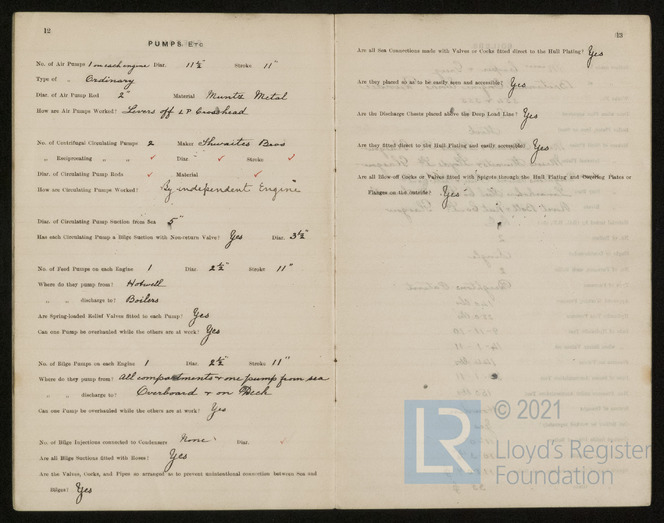 12
PUMPS ETC
No. of Air Pumps 1 on each engine Diar. 11 ½" Stroke 11"
Type of " Ordinary
Diar. of Air Pump Rod 2" Material Muntz Metal
How are Air Pumps Worked? Levers off LP Crosshead
No. of Centrifugal Circulating Pumps 2 Maker Thwaites Bros
" Reciprocating " ✓ Diar ✓ Stroke ✓
Diar. of Circulating Pump Rods ✓ Material ✓
How are Circulating Pumps Worked? By independent Engine
Diar. of Circulating Pump Suction from Sea 5"
Has each Circulating Pump a Bilge Suction with Non-return Valve? Yes Diar. 3½"
No. of Feed Pumps on each Engine 1 Diar. 2½" Stroke 11"
Where do they pump from? Hotwell
" " discharge to? Boilers
Are Spring-loaded Relief Valves fitted to each Pump? Yes
Can one Pump be overhauled while the others are at work? Yes
No. of Bilge Pumps on each Engine 1 Diar. 2½" Stroke 11"
Where do they pump from? All compartments & one pump from sea
" " discharge to? Overboard & on Deck
Can one Pump be overhauled while the others are at work? Yes
No. of Bilge Injections connected to Condensers None Diar. ✓
Are all Bilge Suctions fitted with Roses? Yes
Are the Valves, Cocks, and Pipes so arranged as to prevent unintentional connection between Sea and
Bilges? Yes
13
Are all Sea Connections made with Valves or Cocks fitted direct to the Hull Plating? Yes
Are they placed so as to be easily seen and accessible? Yes
Are the Discharge Chests placed above the Deep Load Line? Yes
Are they fitted direct to the Hull Plating and easily accessible? Yes
Are all Blow-off Cocks or Valves fitted with Spigots through the Hull Plating and Covering Plates or
Flanges on the Outside? Yes
LR © 2021
Lloyd's Register
Foundation